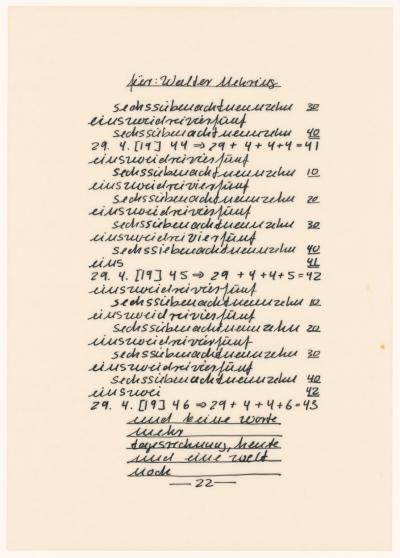 für: Walter Mehring
sechssiebenachtneunzehn 30
einszweidreivierfünf
sechssiebenachtneunzehn 40
29. 4. [19] 44 ⇒ 29 + 4 + 4 + 4 = 41
einszweidreivierfünf
sechssiebenachtneunzehn 10
einszweidreivierfünf
sechssiebenachtneunzehn 20
einszweidreivierfünf
sechssiebenachtneunzehn 30
einszweidreivierfünf
sechssiebenachtneunzehn 40
eins 41
29. 4. [19] 45 ⇒ 29 + 4 + 4 + 5 = 42
einszweidreivierfünf
sechssiebenachtneunzehn 10
einszweidreivierfünf
sechssiebenachtneunzehn 20
einszweidreivierfünf
sechssiebenachtneunzehn 30
einszweidreivierfünf
sechssiebenachtneunzehn 40
einszwei 42
29. 4. [19] 46 ⇒ 29 + 4 + 4 + 6 = 43
und keine worte
mehr
tagesrechnung, heute
und eine welt
noch
— 22 —